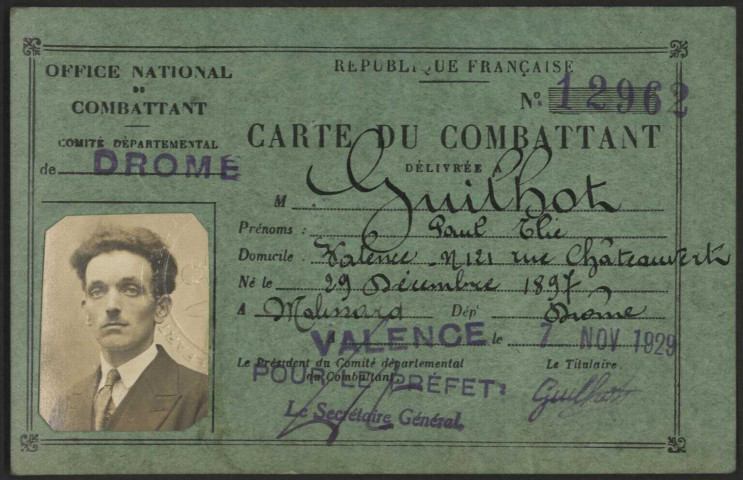 OFFICE NATIONAL
DU
COMBATTANT
COMITÉ DÉPARTEMENTAL
de DROME
RÉPUBLIQUE FRANÇAISE
No. 12962
CARTE DU COMBATTANT
DÉLIVRÉE A
M. Guilhot
Prénoms : Paul Elie
Domicile : Valence - N 121 rue Châteauvert
Né le 29 Décembre 1897
A Malissard Dépt Drôme
A VALENCE le 7 NOV 1929
Le Président du Comité départemental
du Combattant
POUR LE PRÉFET:
Le Secrétaire Général,
Le Titulaire.
Guilhot